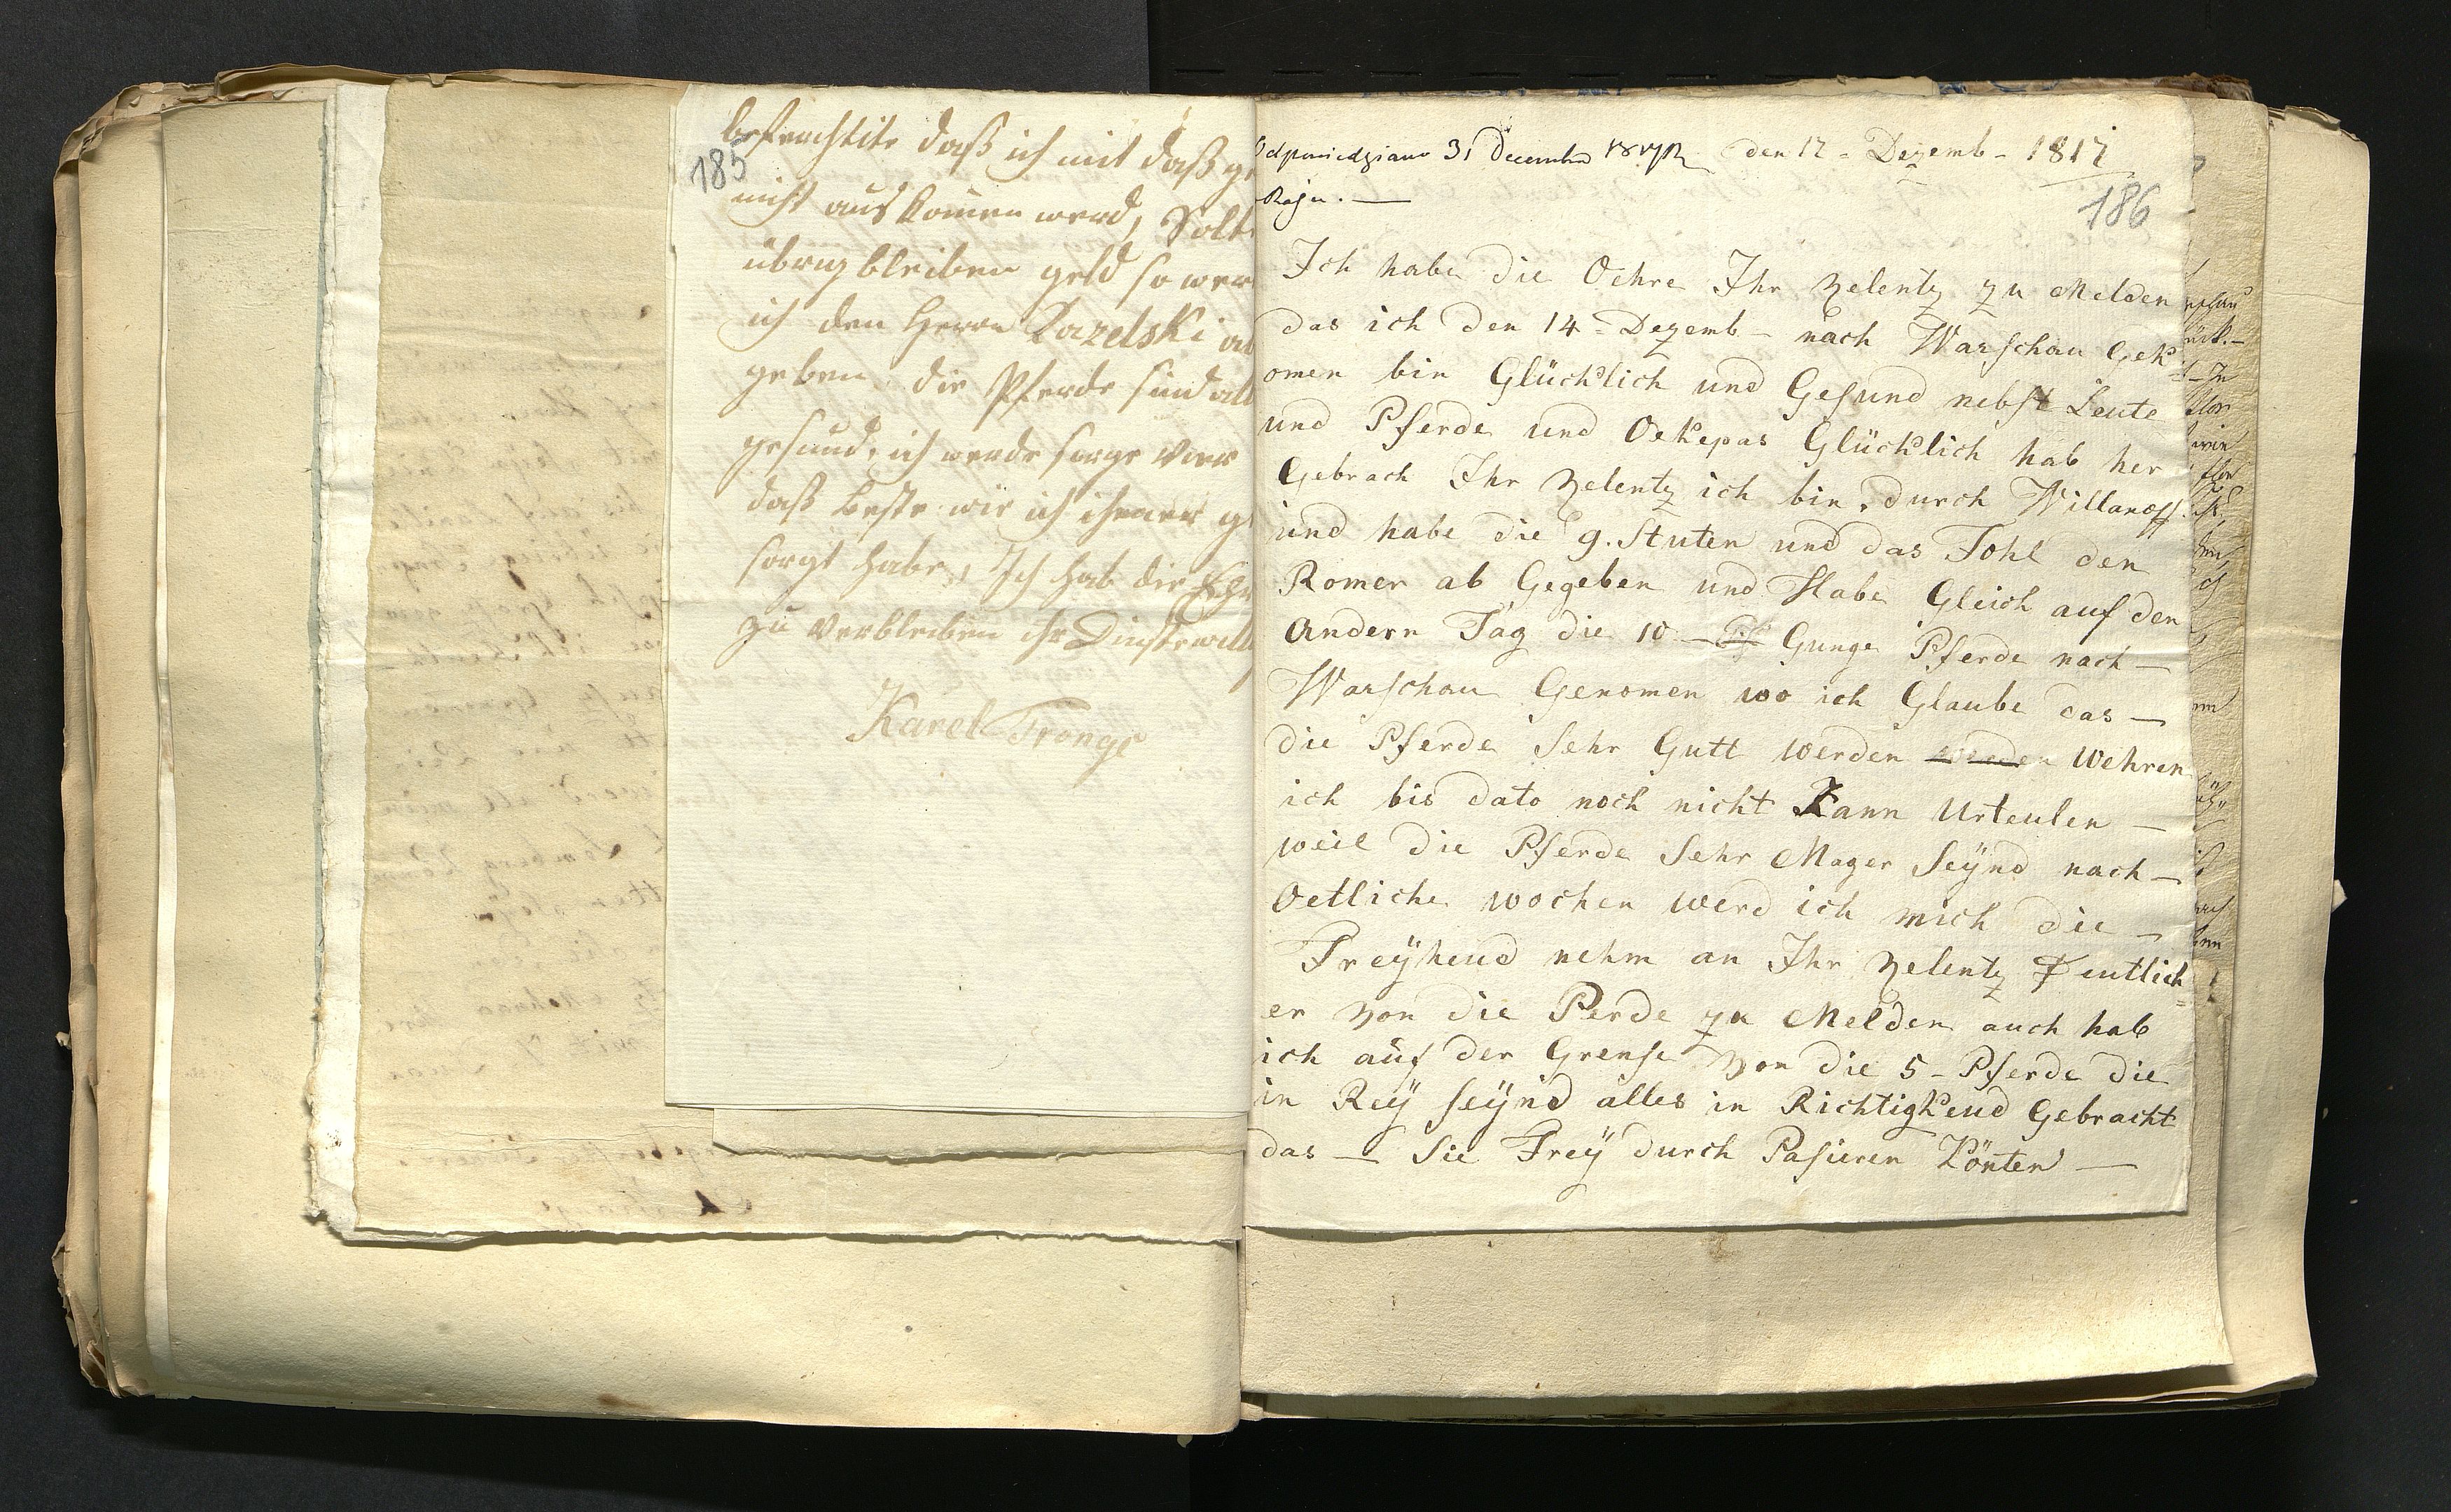 185
befrachtite daß ich mit daß
nicht auskomen werd, Solt
übrig bleiben geld so wer
ich den Herrn Kazelski
geben. die Pferde sind all
gesund, ich werde sorge vor
daß beste wie ich immer
sorgt habe, Ich hab die Ehr
zu verbleiben ihr Dinstwill
Karel Tronge
Odpowiedziano 31 Decembra 1817 R den 17 = Dezemb - 1817
186
Ich habe die Oehre Ihr Zelentz zu Melden
das ich den 14 = Dezemb - nach Warschau Gek
omen bin Glücklich und Gesund nebst Leute
und Pferde und Oekepas Glücklich hab her
Gebrach Ihr Zelentz ich bin durch Willanoff
und habe die 9. Stuten und das Fohl den
Romer ab Gegeben und Habe Gleich auf den
Andern Tag die 10 - Pf Gunge Pferde nach -
Warschau Genomen wo ich Glaube das -
die Pferde Sehr Gutt werden werden Wehren
ich bis dato noch nicht Kann Urteulen -
weil die Pferde Sehr Mager Seÿnd nach -
Oetliche wochen werd ich mich die -
Freÿheud nehm an Ihr Zelentz Deutlich=
er von die Perde zu Melden auch hab
ich auf der Grense von die 5 - Pferde die
in Reÿ seÿnd alles in Richtigkeud Gebracht
das - Sie Freÿ durch Pasieren Könten -